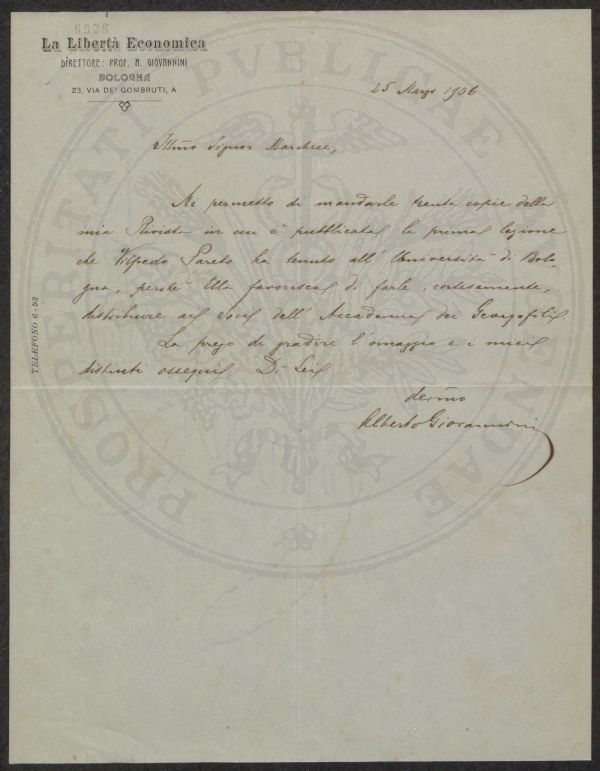 6978
La Libertà Economica
DIRETTORE: PROF. A. GIOVANNINI
BOLOGNA
23, VIA DE' GOMBRUTI, A
25 Marzo 1906
Illmo Signor Marchese,
Mi permetto di mandarle trenta copie della
mia Rivista in cui è pubblicata la prima lezione
che Vilfredo Pareto ha tenuto all' Università di Bolo-
gna, perchè Ella favorisca di farle, cortesemente,
distribuire ai soci dell' Accademia dei Georgofili.
La prego di gradire l'omaggio e i miei
distinti ossequi Di Lei
devmo
Alberto Giovannini
TELEFONO 6-93
PROSPERITATI PVBLICAE AVGENDAE